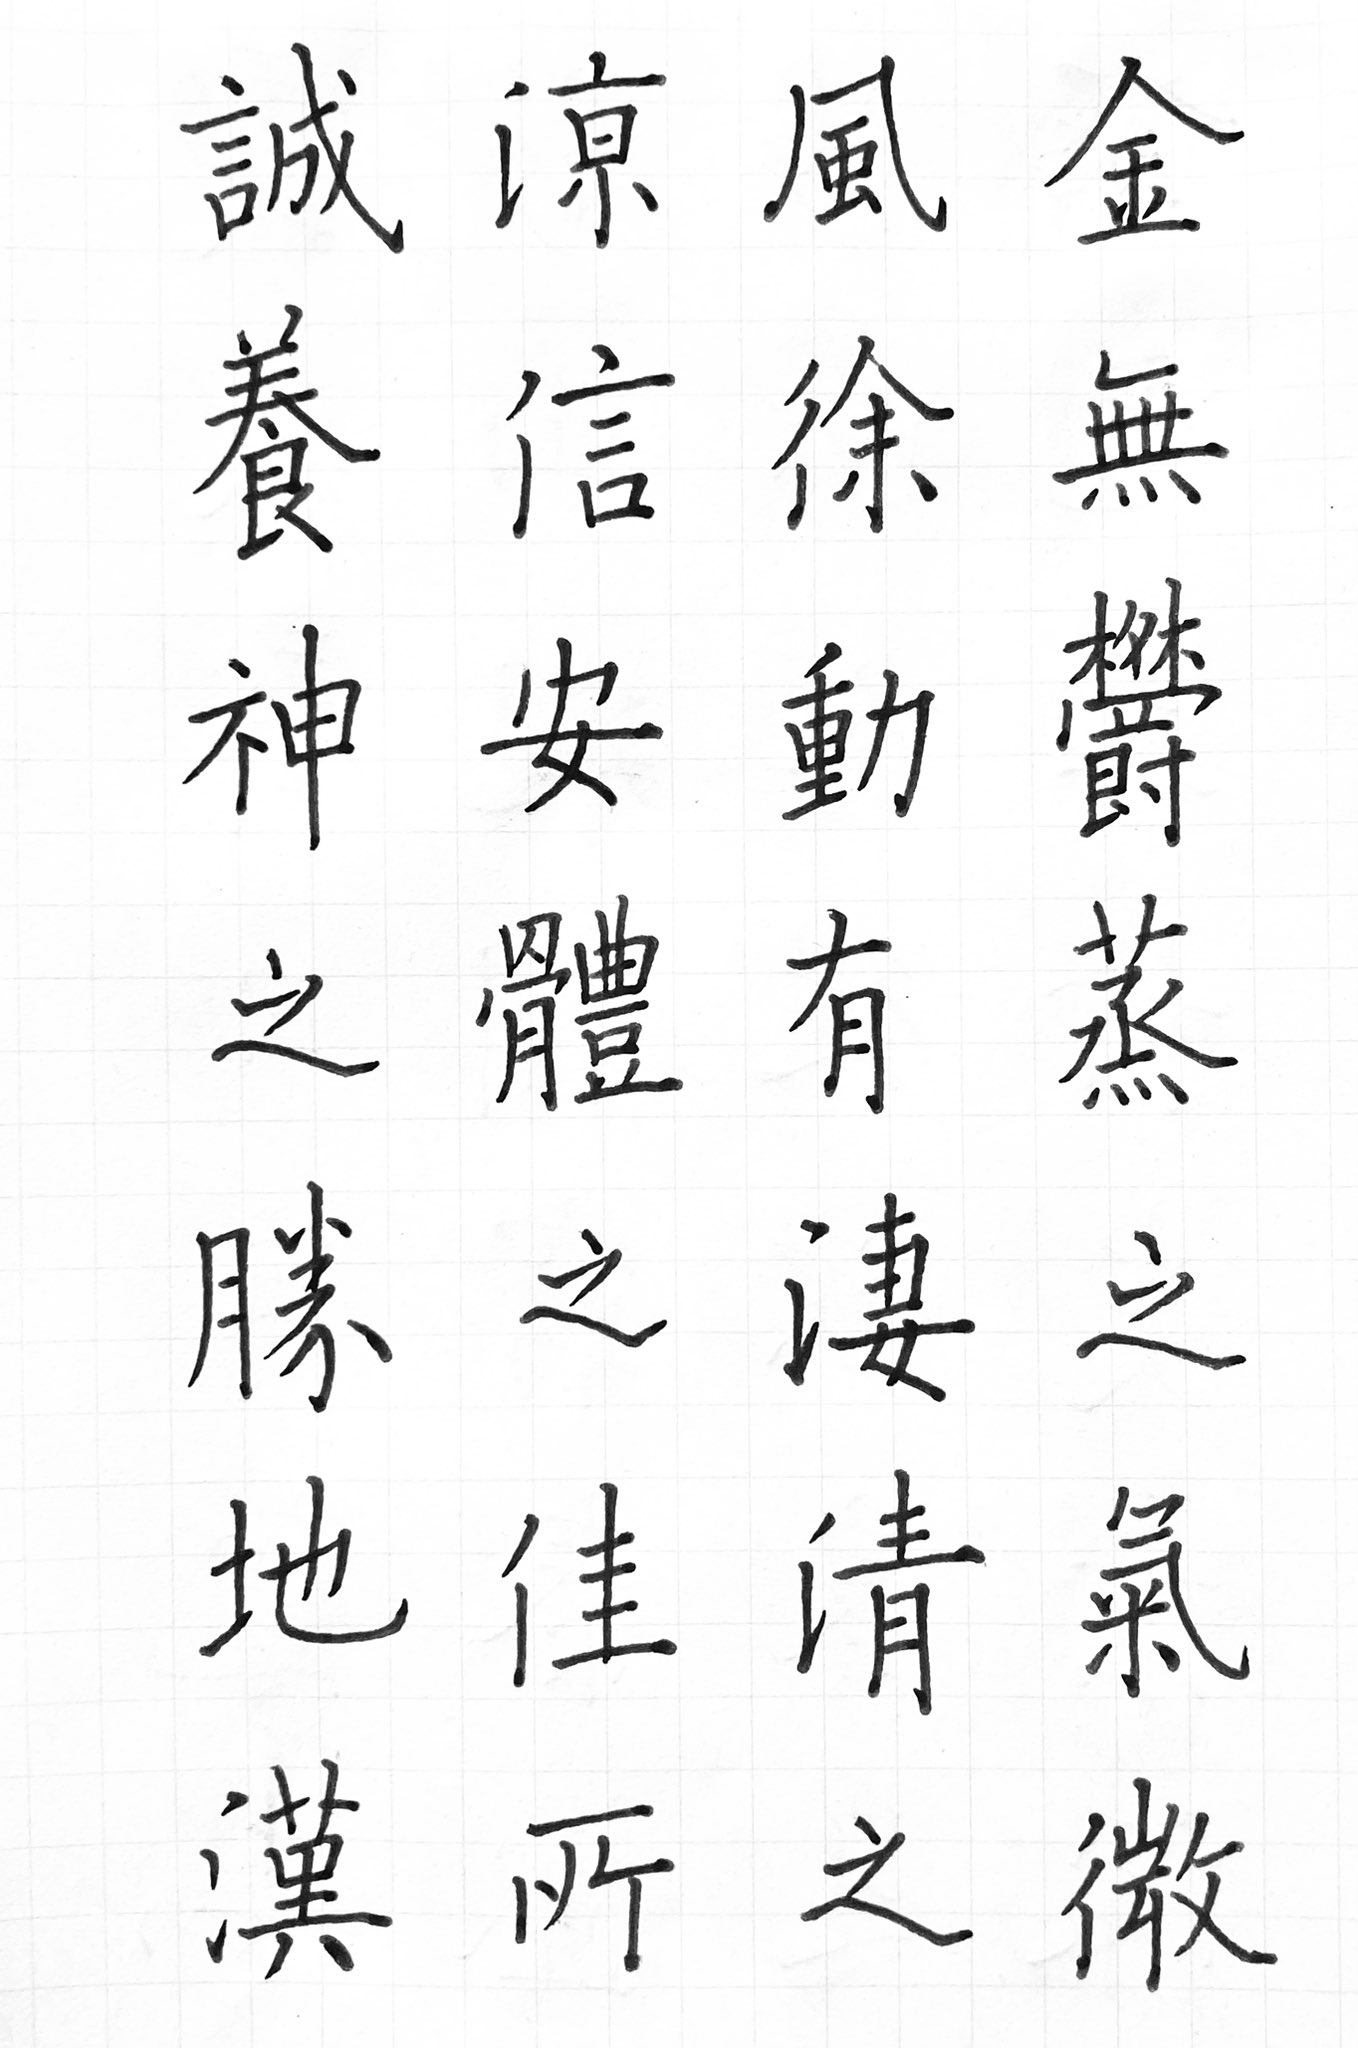 金無鬱蒸之氣微
風徐動有淒清之
涼信安體之佳所
誠養神之勝地漢